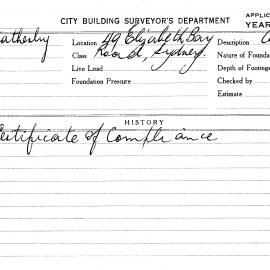 CITY BUILDING SURVEYOR'S DEPARTMENT
APPLIC
YEAR
atherby Location 49 Elizabeth Bay Description
Class Road, Sydney. Nature of Founda
Live Load Depth of Footings
Foundation Pressure Checked by
Estimate
HISTORY
ertificate of Compliance